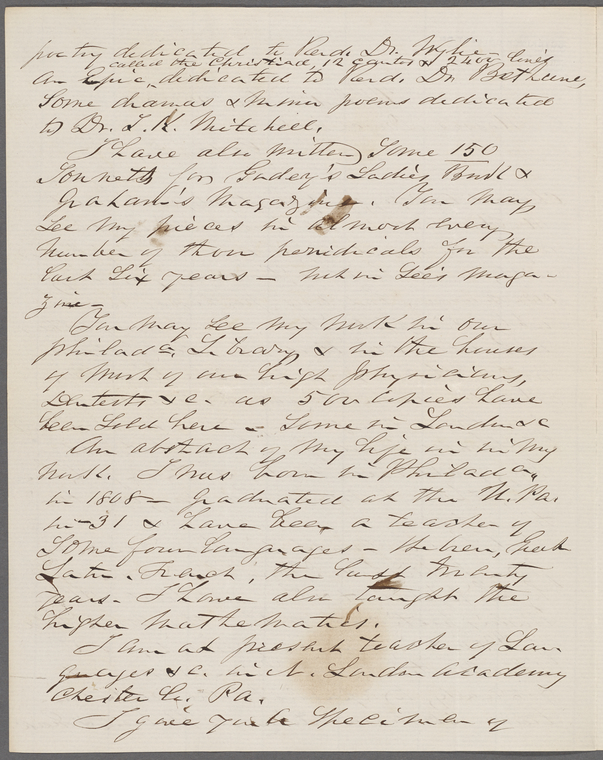 poetry dedicated to Revd. Dr. Wylie
called the Christiad, 12 cantos & 2400 lines
an Epic, dedicated to Revd. Dr. Bethune,
Some dramas & minor poems dedicated
to Dr. J. K. Mitchell.
I have also written Some 150
Sonnets for Godey's Ladies Book &
Graham's Magazine. You may
see my pieces in almost every
number of those periodicals for the
last six years — not in Lee's Maga-
zine —
You may see my work in our
Philada. Library, & in the houses
of most of our high Physicians,
Dentists &c. as 500 copies have
been sold here — Some in London &c
An abstract of my life is in my
work. I was born in Philada.
in 1808 — graduated at the U. Pa.
in 31 & have been a teacher of
Some four languages — Hebrew, Greek
Latin, French, the last twenty
years. I have also taught the
higher mathematics.
I am at present teacher of Lan
guages &c. in N. London Academy
Chester Co. Pa.
I give you a specimen of